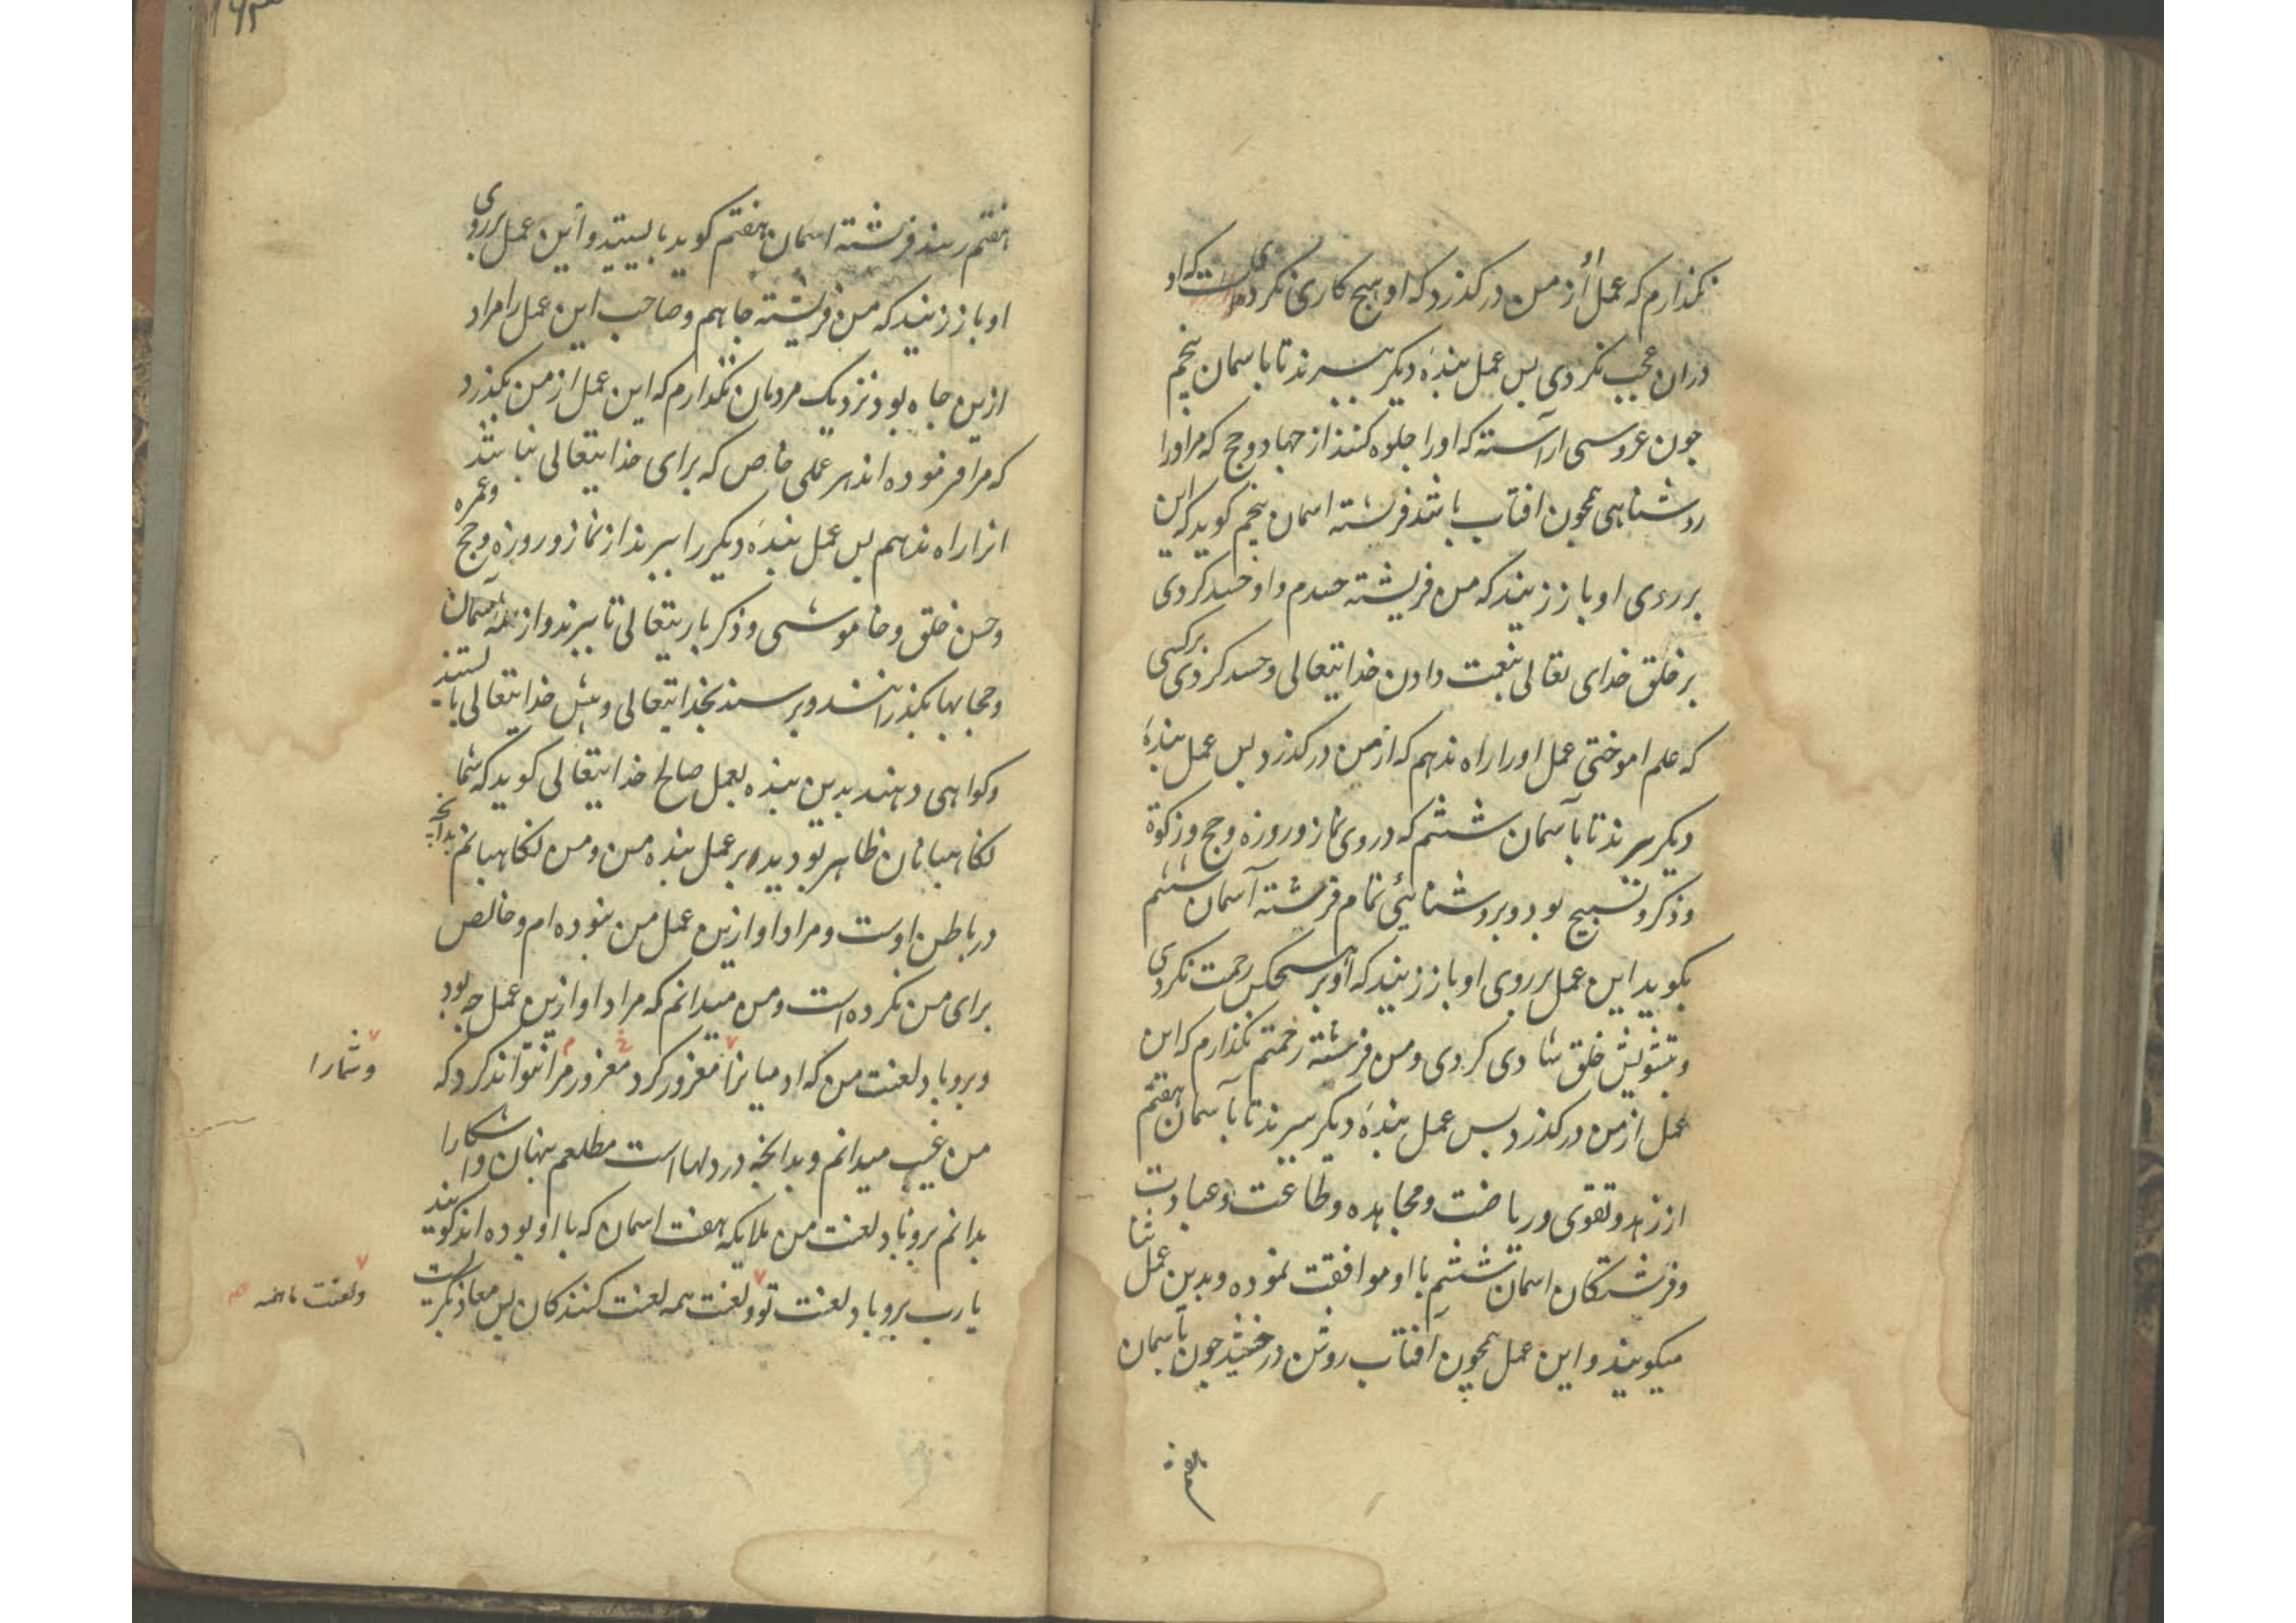 نکذارم که عمل او از من درکذرد که او هیج کاری نکردی که او
دران عجب نکردی بس عمل بندهٔ دیکر ببرند تا باسمان پنجم
جون عروسی اراسته که اورا جلوه کنند از جهاد و حج که مراورا
روشناهی همچون افتاب باشد فرشته اسمان پنجم کوید که این
بر روی او باز زنید که من فریشته حسدم و او حسد کردی
بر خلق خدای تعالی بنعمت دادن خدایتعالی و حسد کردی برکسی
که علم اموختی عمل اورا راه ندهم که از من درکذرد بس عمل بندهٔ
دیکر ببرند تا بآسمان ششم که در وی نماز و روزه و حج و زکوة
و ذکر و تسبیح بود و بروشنائی تمام فرشته آسمان ششم
بکوید این عمل بر روی او باز زنید که او بر هیچکس رحمت نکردی
و بتشویش خلق شادی کردی و من فرشته رحمتم نکذارم که این
عمل از من درکذرد بس عمل بندهٔ دیکر ببرند تا بآسمان هفتم
از زهد و تقوی و ریاضت و مجاهده و طاعت و عبادت
و فرشتکان اسمان ششم با او موافقت نموده و بدین عمل ثنا
میکویند و این عمل همچون آفتاب روشن درخشید جون بآسمان
هفتم
هفتم رسند فرشته اسمان هفتم کوید بایستید و این عمل بر روی
او باز زنید که من فریشته جاهم و صاحب این عمل را مراد
ازین جاه بود نزدیک مردمان نکذارم که این عمل از من بکذرد
که مرا فرموده اند هر عملی خاص که برای خدایتعالی نباشد
انرا راه ندهم بس عمل بندهٔ دیکر را ببرند از نماز و روزه و حج و عمره
و حسن خلق و خاموشی و ذکر باریتعالی تا ببرند و از همه آسمان
و حجابها بکذرانند و برسند بخدایتعالی و پیش خدایتعالی بایستند
و کواهی دهند بدین بنده بعمل صالح خدایتعالی کوید که شما
نکاهبانان ظاهر بودید بر عمل بنده من و من نکاهبانم بدآنچه
در باطن اوست و مراد او ازین عمل من نبوده ام و خالص
برای من نکرده است و من میدانم که مراد او ازین عمل چه بود
و برو باد لعنت من که ادمیانرا مغرور کرد مغرور مرا نتواند کرد که
و شمارا
من غیب میدانم و بدانچه در دلها است مطلعم پنهان و اشکارا
بدانم برو باد لعنت من ملایکه هفت اسمان که با او بوده اند کویند
یارب برو باد لعنت تو و لعنت همه لعنت کنندکان بس معاذ بکریست
و لعنت ما همه